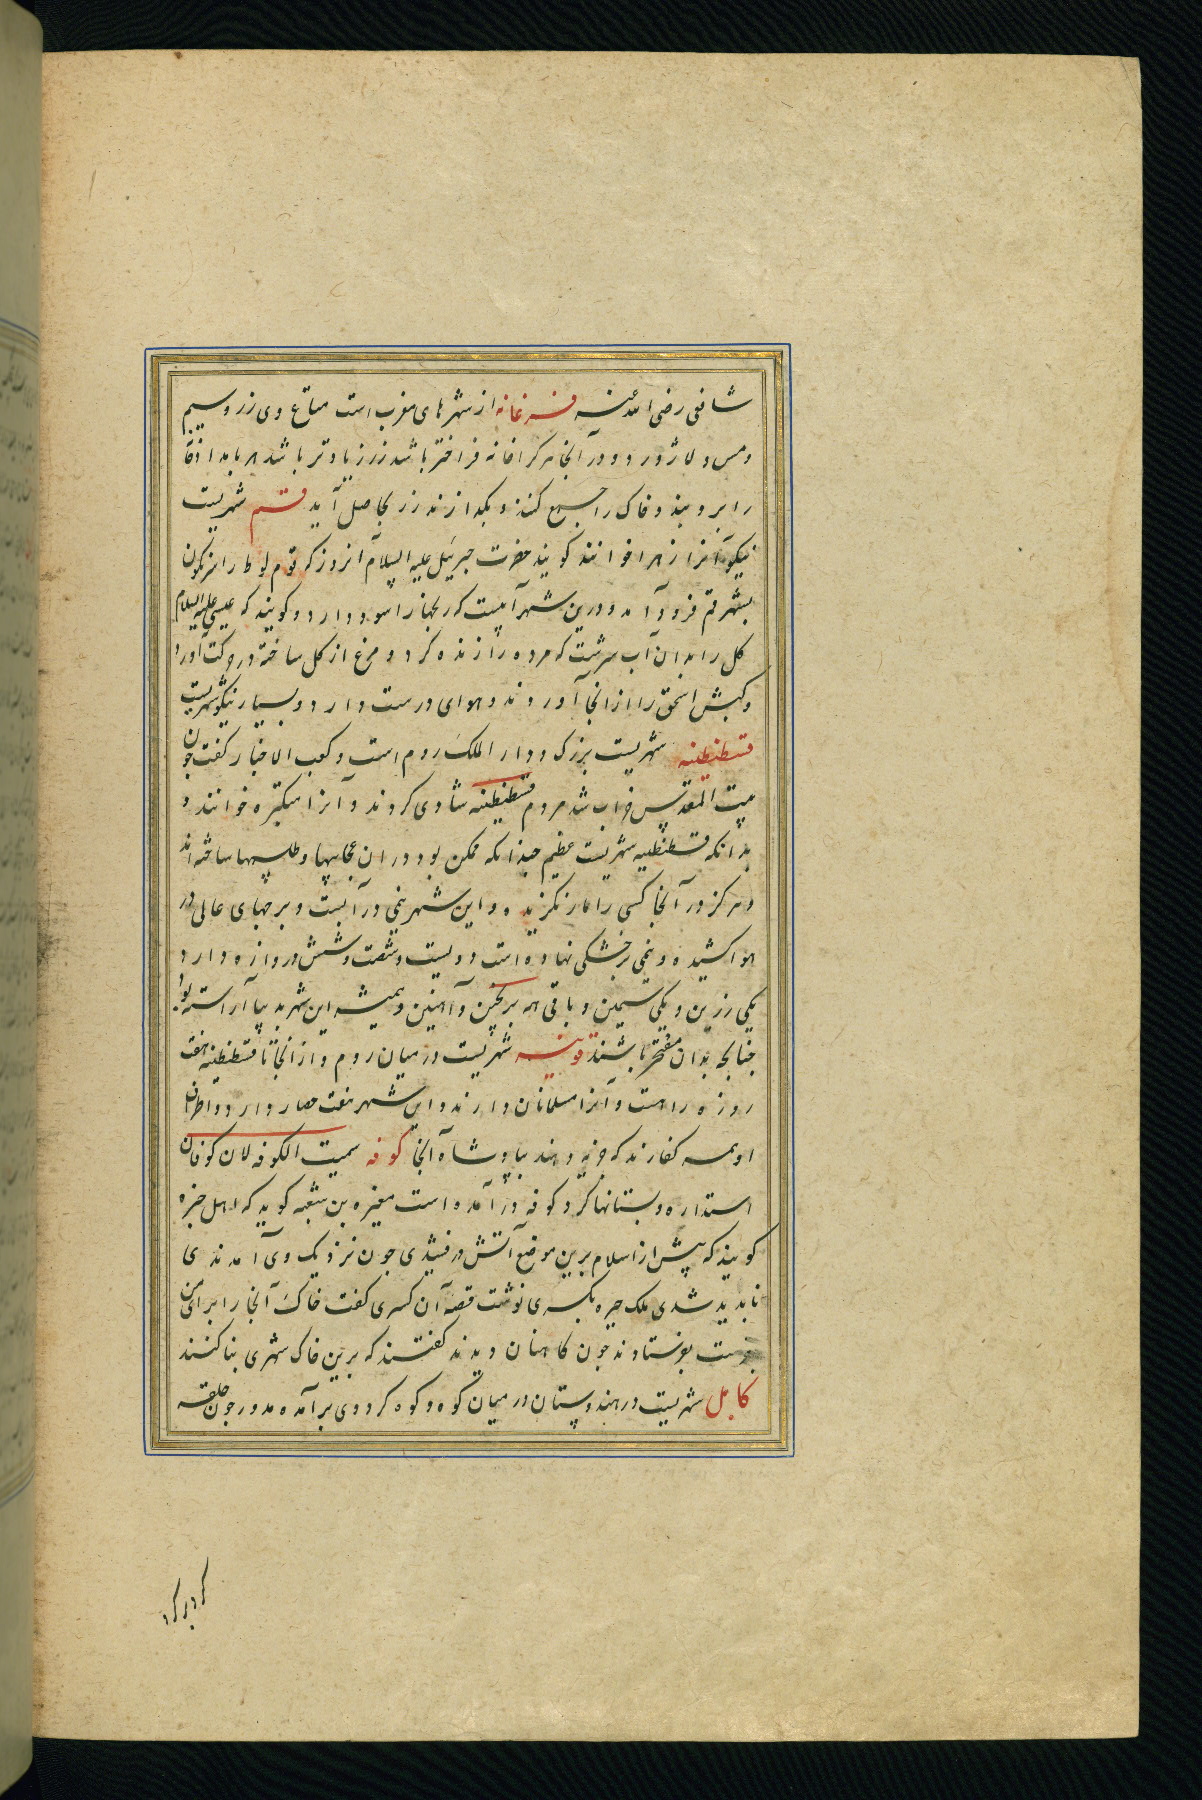 شافعی رضی الله عنه فرغانه از شهرهای مغرب است متاع وی زر و سیم
و مس و لاژورد و در آنجا هر کرا خانه فراختر باشد زر زیادتر باشد هر بامداد
را بروبند و خاک را جمع کنند و بکدازند زر بحاصل آید قم شهریست
نیکو آنرا زهرا خوانند کویند حضرت جبرئیل علیه السلام انروز که قوم لوط را سرنکون
بشهر قم فرود آمد و درین شهر آبیست که رنجها را سود دارد و کویند که عیسی علیه السلام
کل را بدان آب سرشت که مرده را زنده کرد و مرغ از کل ساخته در حرکت آورد
و کبش اسحق را از انجا آوردند و هوای درست دارد و بسیار نیکو شهریست
قسطنطنیه شهریست بزرک و دار الملک روم است و کعب الاخبار کفت چون
بیت المقدس خراب شد مردم قسطنطنیه شادی کردند و آنرا متکبره خوانند و
بدانکه قسطنطنیه شهریست عظیم چندانکه ممکن بود در ان عجایبها و طلسمها ساخته اند
و هرکز در آنجا کسی را مار نکزیده و این شهر نیمی در آبست و برجهای عالی در
هوا کشیده و نیمی بر خشکی نهاده است دویست و شصت و شش دروازه دارد
یکی زرین و یکی سیمین و باقی همه برنجین و آهنین و همیشه این شهر بدیبا آراسته بود
چنانچه بدان مفتخر باشند قونیه شهریست در میان روم و از انجا تا قسطنطنیه هفت
روزه راهست و آنرا مسلمانان دارند و این شهر هفت حصار دارد و اطراف
او همه کفارند که جزیه دهند بپادشاه آنجا کوفه سمیت الکوفه لان کوفان
استداره و بستانها کرد کوفه در آمده است مغیره بن شعبه کوید که اهل حیره
کویند که پیش از اسلام برین موضع آتش درفشیدی چون نزدیک وی آمدندی
ناپدید شدی ملک حیره بکسری نوشت قصه آن کسری کفت خاک آنجا را برای من
بفرست بفرستادند چون کاهنان دیدند کفتند که برین خاک شهری بنا کنند
کابل شهریست در هندوستان در میان کوه و کوه کرد وی برآمده مدور چون حلقه
کرد بر کرد